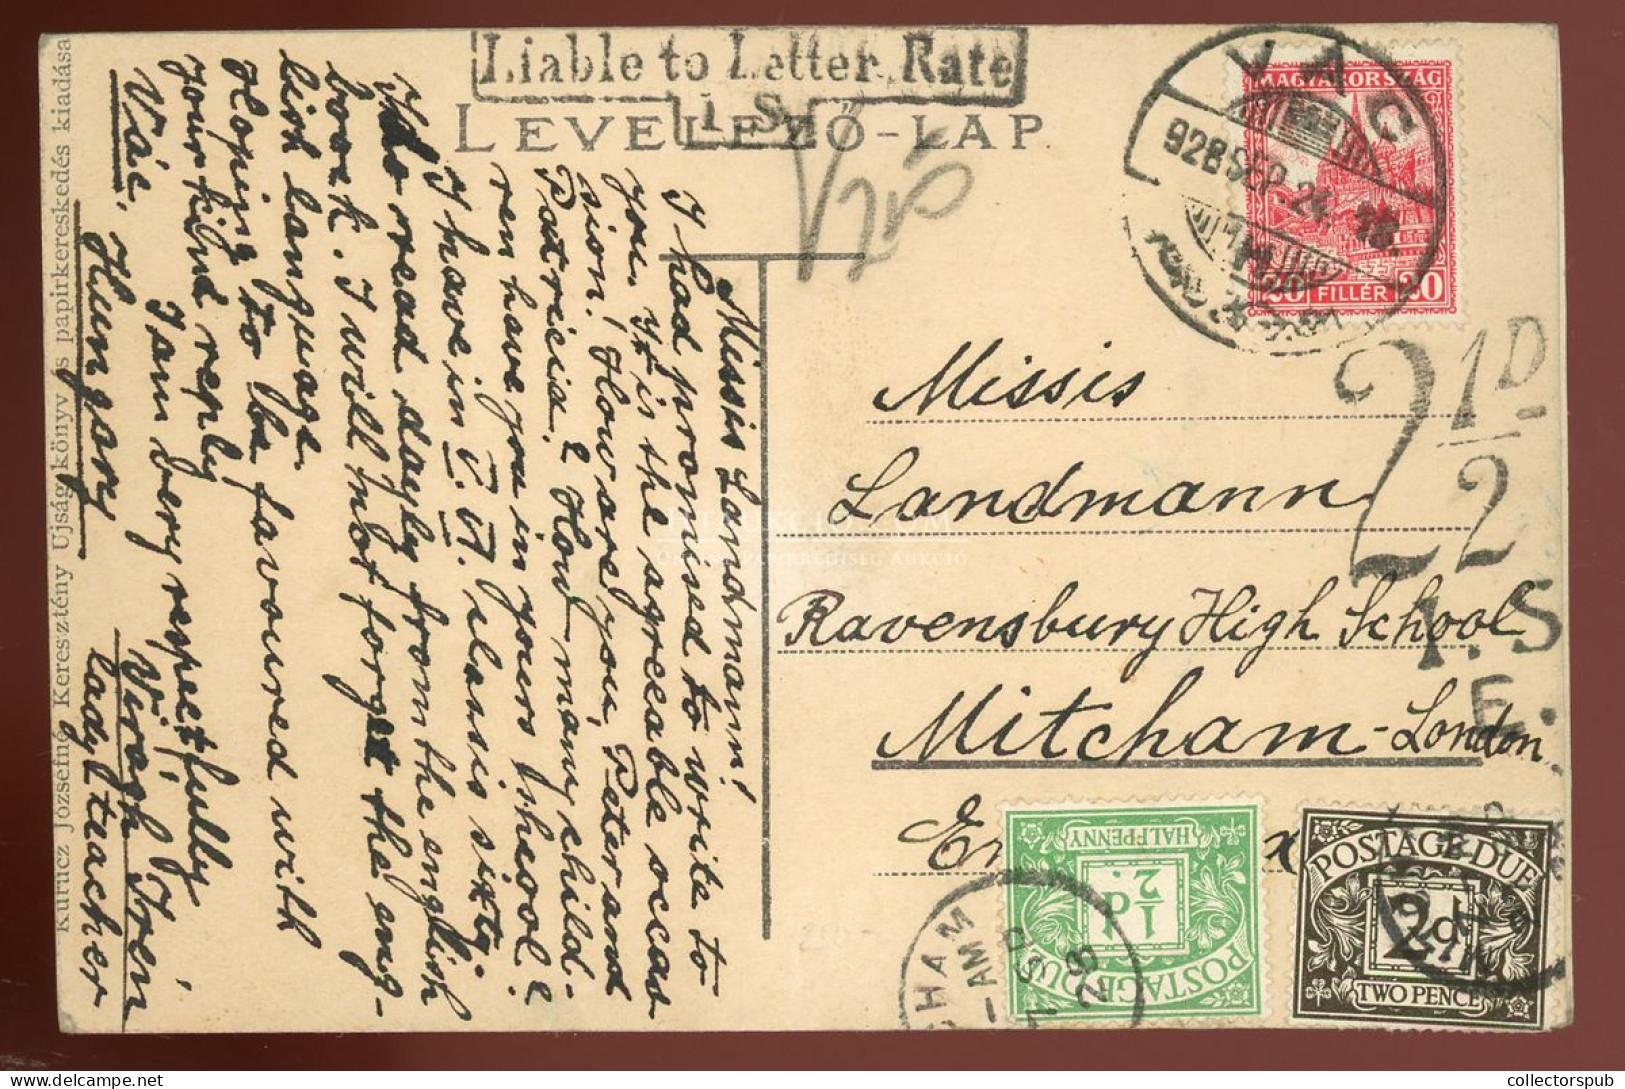 Liable to Letter Rate
I.S.
LEVELEZŐ-LAP
VÁC
928 SEP. 24. 18
MAGYARORSZÁG
20 FILLÉR 20
2 1/2 D
I.S.
E.
Missis
Landmann
Ravensbury High School
Mitcham-London
POSTAGE DUE
½d.
HALFPENNY
POSTAGE DUE
2d
TWO PENCE
CHAM
AM
SP
28
Missis Landmann!
I had promised to write to
you. It is the agreeable occas
sion! How are you, Peter and
Patricia? How many child-
ren have you in yours scheool?
I have in V. VI. classis sixty.
Tho read dayly from the english
boock. I will not forget the eng-
lish language.
Hoping to be favoured with
your kind reply
I am very respectfully
Vác. Virágh Iren
Hungary ladyteacher
Kurucz Józsefné Keresztény Ujság könyv és papirkereskedés kiadása